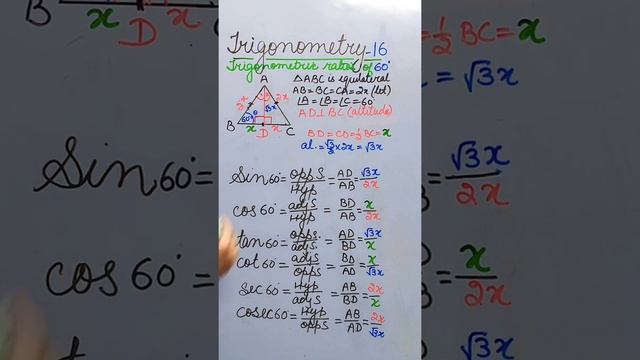 Trigonometry-16
Trigonometric ratios of 60°
A
△ABC is equilateral
AB=BC=CA=2x (let)
∠A=∠B=∠C=60°
AD⊥BC (altitude)
2x
2x
√3x
60°
B
D
C
x
x
BD=CD=½BC=x
al.=√3/2×2x=√3x
Sin60°=oppS/Hyp=AD/AB=√3x/2x
cos60°=adjS/Hyp=BD/AB=x/2x
tan60°=oppS/adjS=AD/BD=√3x/x
cot60°=adjS/oppS=BD/AD=x/√3x
sec60°=Hyp/adjS=AB/BD=2x/x
cosec60=Hyp/oppS=AB/AD=2x/√3x
B
x
D
x
Sin60°=
cos60°=
=½BC=x
=√3x
√3x/2x
x/2x
√3x